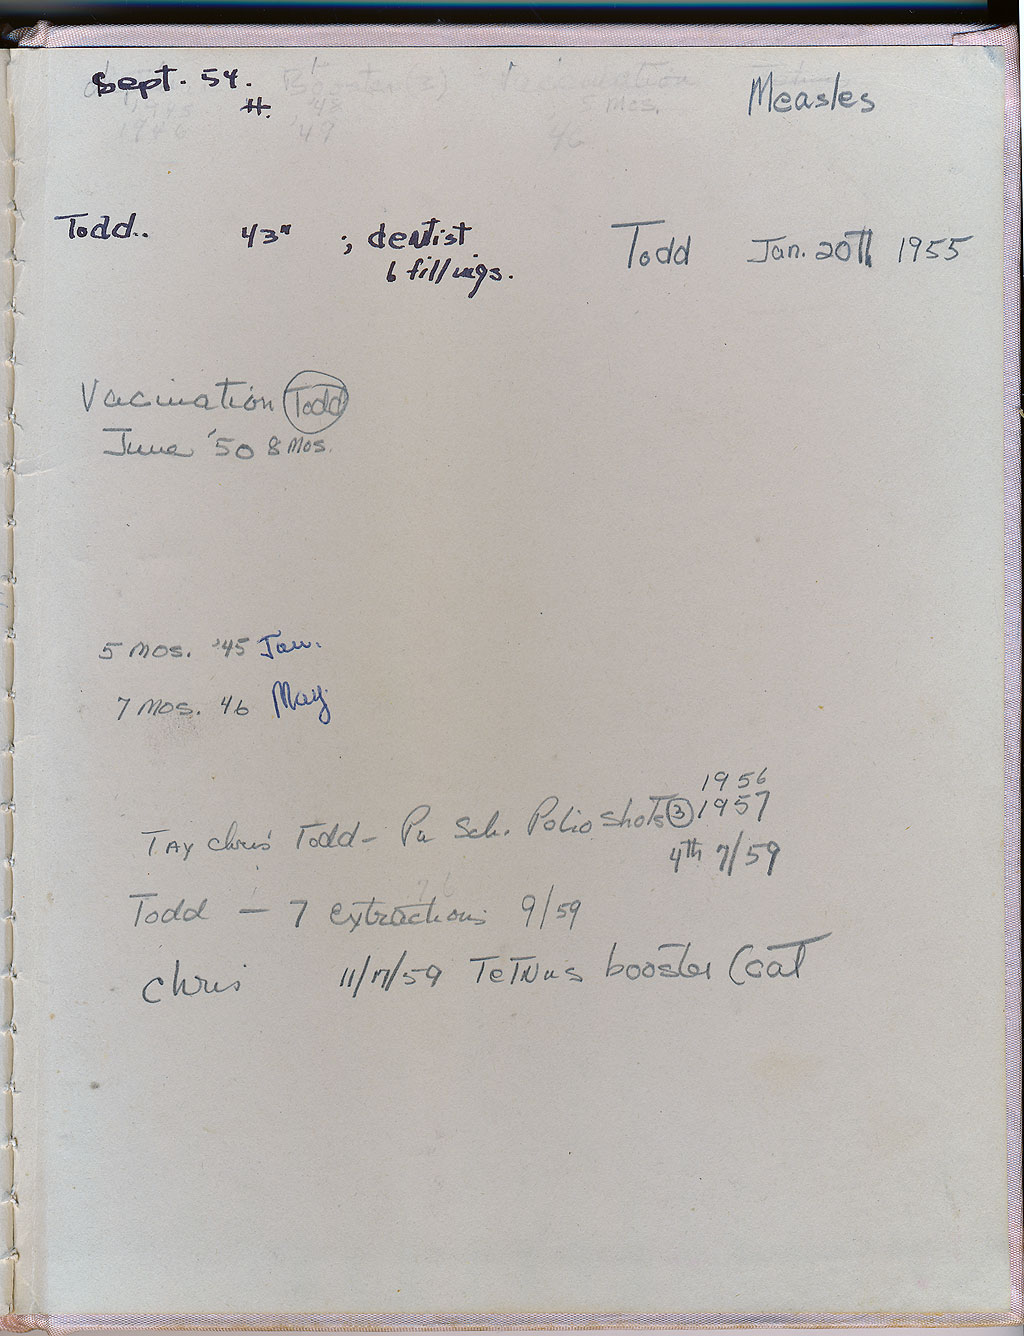 Sept. 54.
#.
Measles
Booster(s)
1945 '48 Mos.
1946 '49 '46
Todd.. 43" ; dentist
6 fillings.
Todd Jan. 20th 1955
Vacination Todd
June '50 8 Mos.
5 Mos. '45 Jan.
7 Mos. 46 May
1956
TAY Chris Todd - Pu Sch. Polio shots ③ 1957
4th 7/59
Todd — 7 extractions 9/59
Chris 11/17/59 TeTNus booster (cat